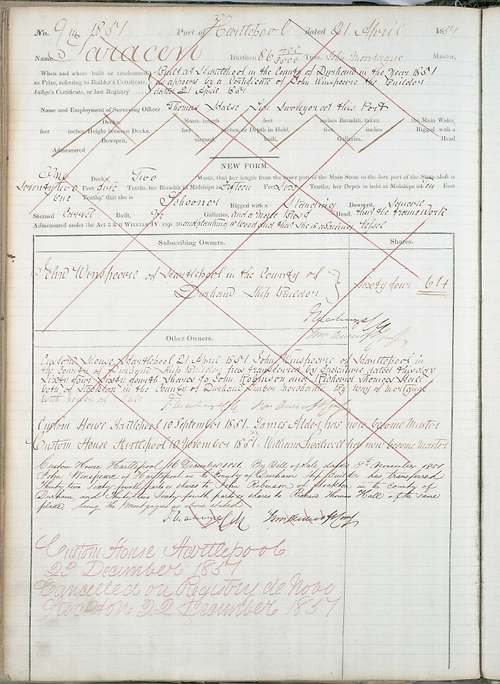 No. 9 in 1851 Port of Hartlepool dated 21 April 1851
Name Saracen Burthen 86 Master,
When and where built or condemned as Prize, referring to Builder's Certificate, Judge's Certificate, or last Registry
Built at Hartlepool in the County of Durham in the Year 1851
as appears by a Certificate of John Winspeare the Builder
dated 21 April 1851
Name and Employment of Surveying Officer Thomas Tide Surveyor of this Port
Decks, Masts, length feet inches Breadth, taken her Main Wales,
feet inches Height between Decks, feet inches Depth in Hold, Rigged with a
feet Bowsprit, sterned, built, Galleries, Head
Admeasured
NEW FORM.
One Decks, Two Masts, that her length from the inner part of the Main Stem to the fore part of the Stern aft is
Seventy two Feet five Tenths, her Breadth in Midships is Fifteen Feet Tenths, her Depth in hold at Midships is ten Feet
one Tenths, that she is Schooner Rigged with a Standing Bowsprit, Square
Sterned Carvel Built, No Galleries, and a Head, that the framework
Admeasured under the Act 5 & 6 WILLIAM IV. cap. and planking is wood and that she is a sailing Vessel
Subscribing Owners. Shares.
John Winspeare of Hartlepool in the County of
Durham Ship builder
Sixty four 64
Other Owners.
Custom House Hartlepool 21 April 1851 John Winspeare of Hartlepool in
the County of Durham Ship Builder has transferred by Indenture dated this day
Sixty four Sixty fourth Shares to John Robinson and Richard Thomas Hall
both of Stockton in the County of Durham Timber Merchants by way of Mortgage
Custom House Hartlepool 10 September 1851. James Alder has now become Master
Custom House Hartlepool 10 November 1851. William has now become Master
Custom House Hartlepool December 1851 By Bill of Sale dated November 1851
John Winspeare of Hartlepool in the County of Durham Ship Builder has transferred
Thirty two Sixty fourth parts or shares to John Robinson of Stockton in the County of
Durham and Thirty two Sixty fourth parts or shares to Richard Thomas Hall of the same
place, being the Mortgagees
Custom House Hartlepool
23 December 1851
Cancelled on Registry de Novo
Stockton 22 December 1851